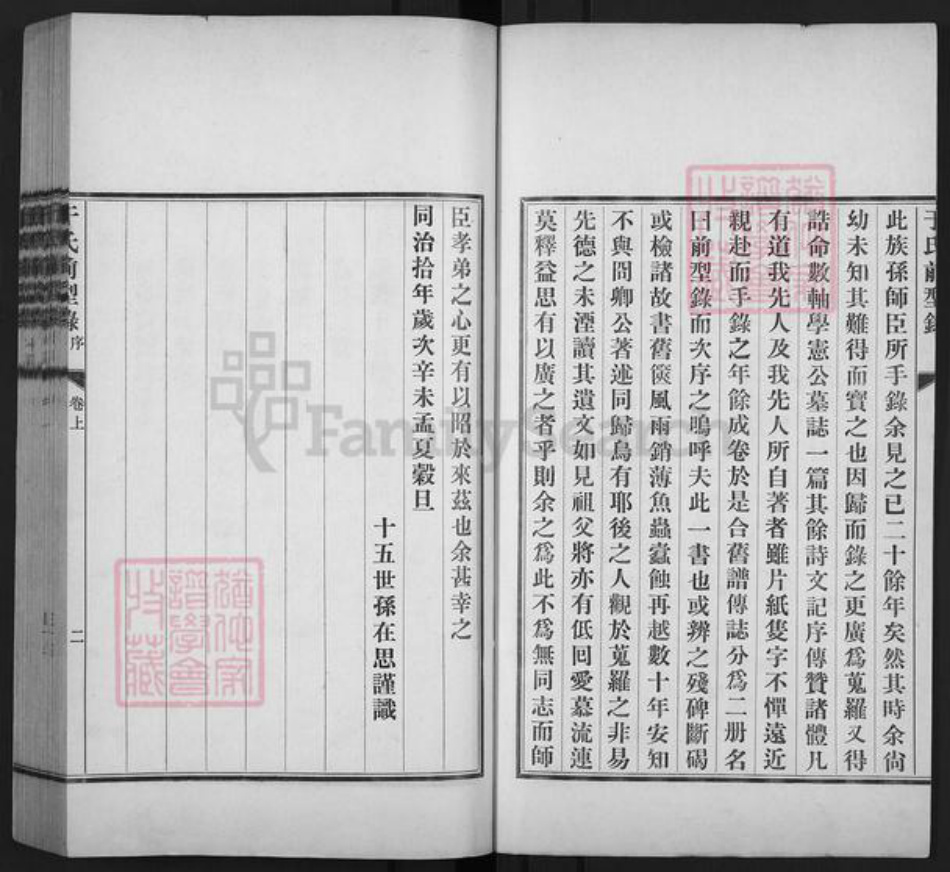 于氏前型錄
此族孫師臣所手錄余見之已二十餘年矣然其時余尙
幼未知其難得而寶之也因歸而錄之更廣爲蒐羅又得
誥命數軸學憲公墓誌一篇其餘詩文記序傳贊諸體凡
有道我先人及我先人所自著者雖片紙隻字不憚遠近
親赴而手錄之年餘成卷於是合舊譜傳誌分爲二册名
曰前型錄而次序之嗚呼夫此一書也或辨之殘碑斷碣
或檢諸故書舊篋風雨銷薄魚蟲蠹蝕再越數十年安知
不與罔卿公著述同歸烏有耶後之人觀於蒐羅之非易
先德之未湮讀其遺文如見祖父將亦有低回愛慕流連
莫釋益思有以廣之者乎則余之爲此不爲無同志而師
臣孝弟之心更有以昭於來茲也余甚幸之
同治拾年歲次辛未孟夏穀旦
十五世孫在思謹識
于氏前型錄 序 卷上 二
FamilySearch
譜學會
收藏